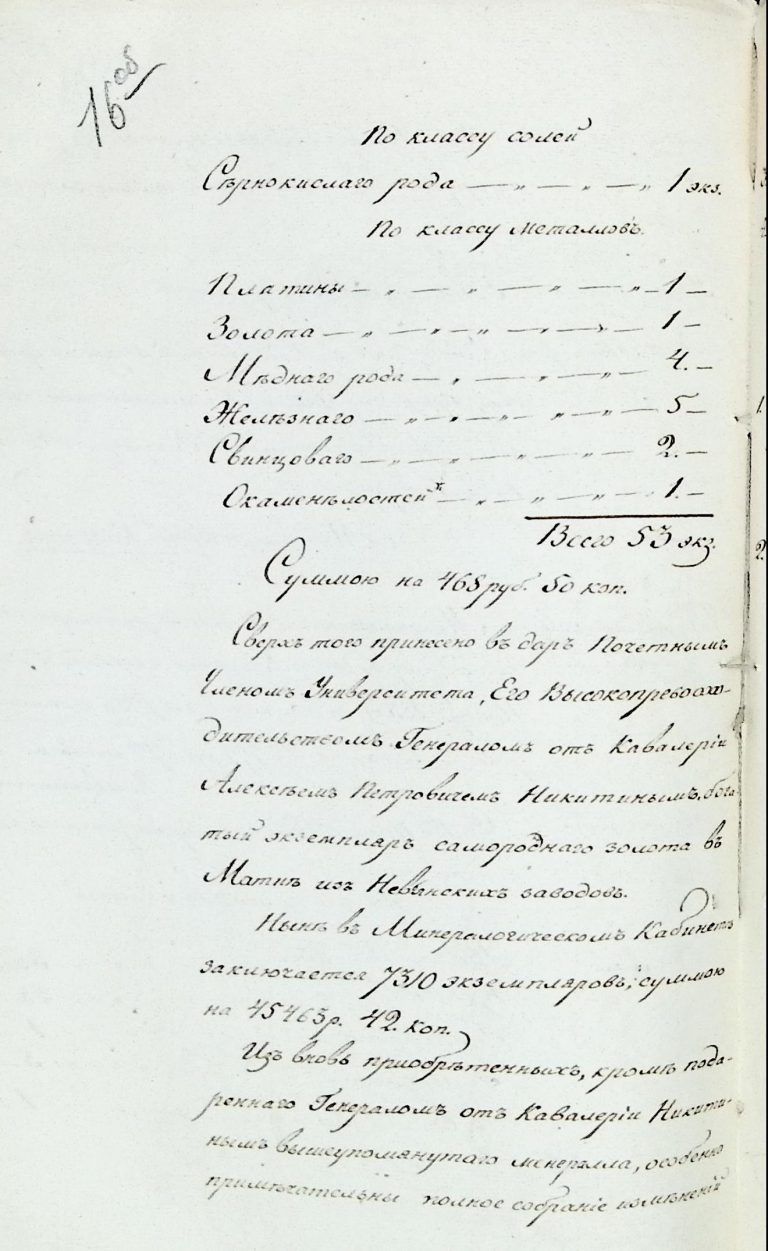 16 об
По классу солей
Сѣрнокислаго рода — „ — „ — „ 1 экз.
По классу металловъ.
Платины — „ — „ — „ — „ — 1 —
Золота — „ — „ — „ — „ — 1 —
Мѣднаго рода — „ — „ — „ — 4. —
Желѣзнаго — „ — „ — „ — „ — 5 —
Свинцоваго — „ — „ — „ — „ — 2. —
Окаменѣлостей — „ — „ — „ — 1. —
Всего 53 экз.
Суммою на 468 руб. 50 коп.
Сверхъ того принесено въ даръ Почетнымъ
Членомъ Университета, Его Высокопревосхо-
дительствомъ Генераломъ отъ Кавалеріи
Алексѣемъ Петровичемъ Никитинымъ, бога-
тый экземпляръ самороднаго золота въ
изъ заводовъ.
Нынѣ въ Минералогическомъ Кабинетѣ
заключается 7310 экземпляровъ, суммою
на 45463 р. 42. коп.
Изъ вновь приобрѣтенныхъ, кромѣ пода-
реннаго Генераломъ отъ Кавалеріи Никити-
нымъ вышеупомянутаго минералла, особенно
примѣчательны полное собраніе измѣненій
1.
2.